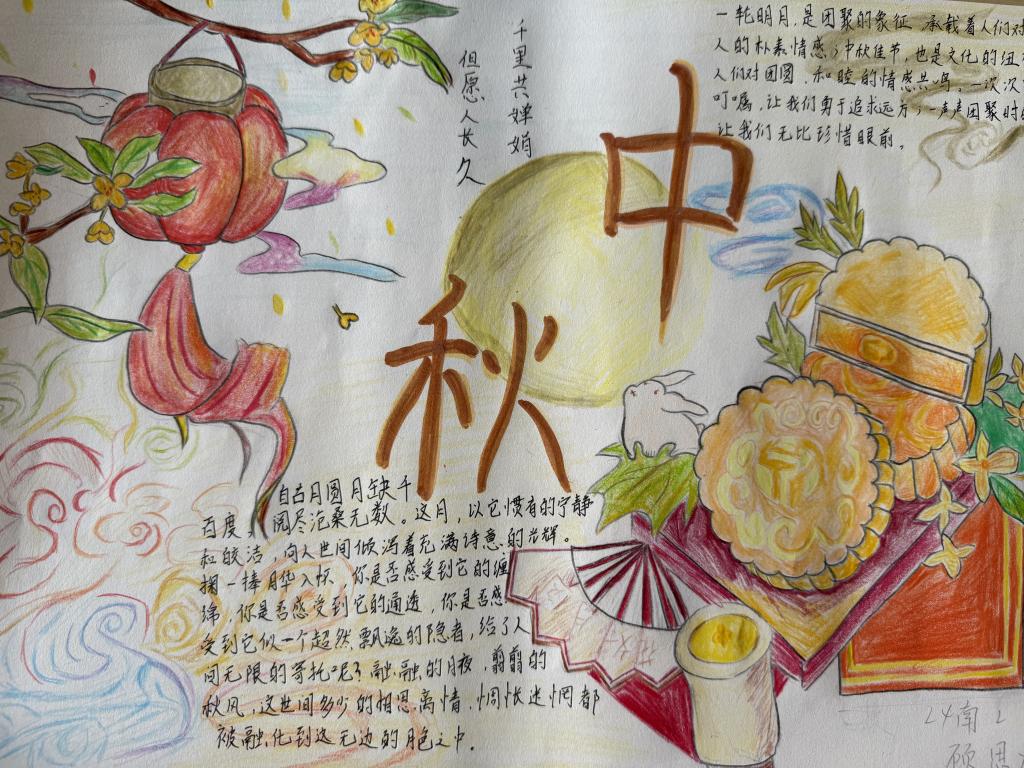 一轮明月,是团聚的象征,承载着人们对
人的朴素情感;中秋佳节,也是文化的纽
人们对团圆、和睦的情感共鸣。一次次
叮嘱,让我们勇于追求远方;一声声团聚的
让我们无比珍惜眼前。
千里共婵娟
但愿人长久
中
秋
自古月圆月缺千
百度,阅尽沧桑无数。这月,以它惯有的宁静
和皎洁,向人世间倾泻着充满诗意的光辉。
掬一捧月华入怀,你是否感受到它的缠
绵,你是否感受到它的通透,你是否感
受到它似一个超然飘逸的隐者,给了人
间无限的寄托呢?融融的月夜,翦翦的
秋风,这世间多少的相思离情,惆怅迷惘都
被融化到这无边的月色之中.
24南2
顾思